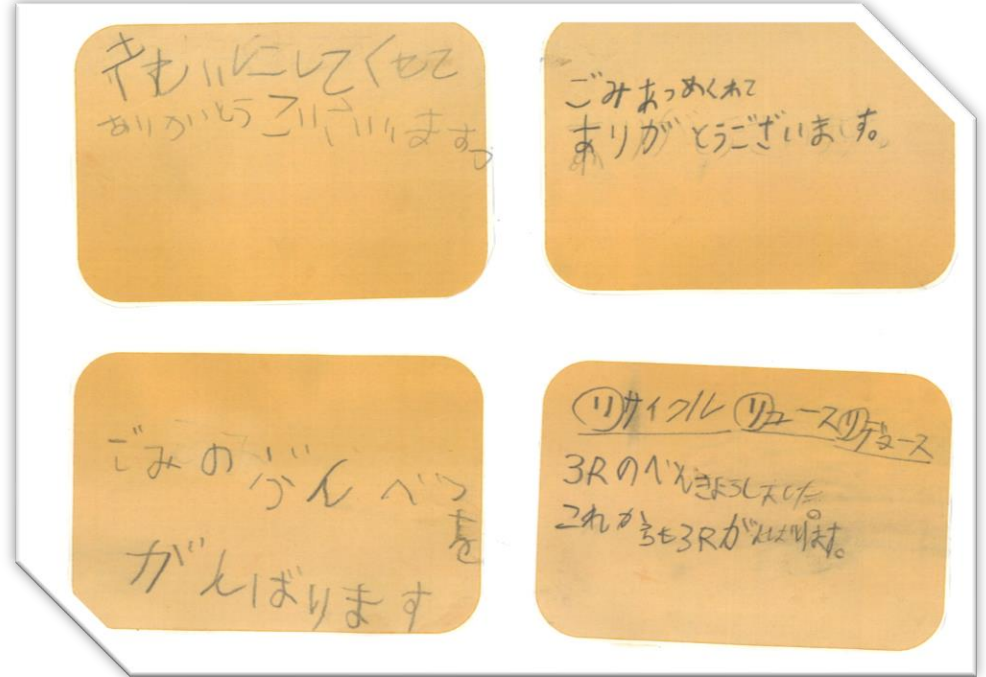 きれいにしてくれて
ありがとうございます。
ごみあつめくれて
ありがとうございます。
ごみのぶんべつ
を
がんばります
リサイクル リユース リデュース
3Rのべんきょうしました。
これからも3Rがんばります。